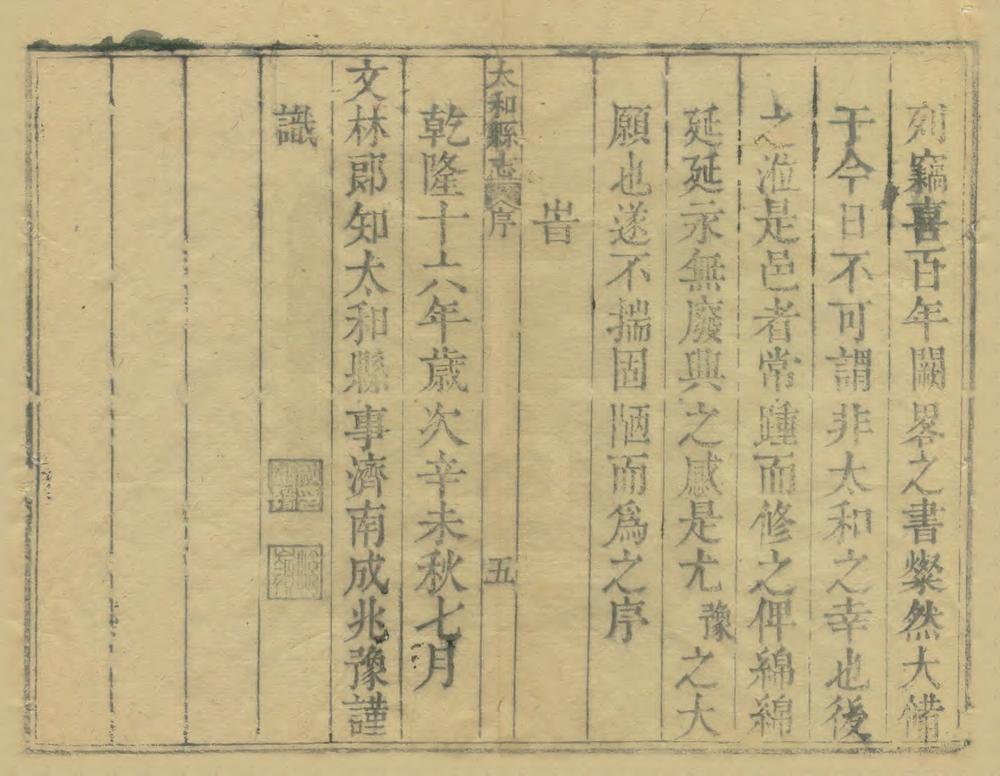 列竊喜百年闕畧之書燦然大備
于今日不可謂非太和之幸也後
之涖是邑者常踵而修之俾綿綿
延延永無廢興之感是尤豫之大
願也遂不揣固陋而為之序
旹
太和縣志 序 五
乾隆十六年歲次辛未秋七月
文林郎知太和縣事濟南成兆豫謹
識